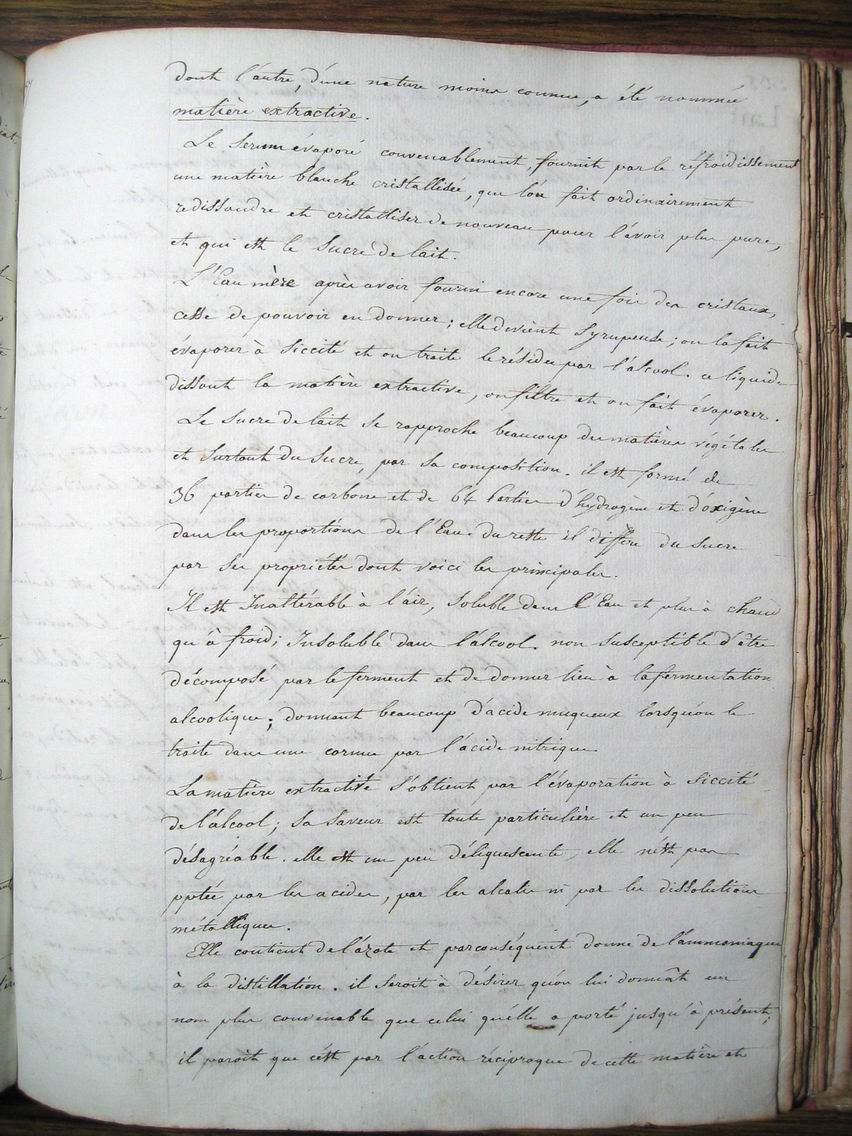 dont l'autre, d'une nature moins connue, a été nommée
matière extractive.
Le Serum évaporé convenablement, fournit par le réfroidissement
une matière blanche cristallisée, que l'on fait ordinairement
redissoudre et cristalliser de nouveau pour l'avoir plus pure,
et qui est le Sucre de lait.
L'Eau mère après avoir fourni encore une fois des cristaux,
cesse de pouvoir en donner; elle devient Syrupeuse; on la fait
évaporer à Siccité et on traite le résidu par l'álcool. ce liquide
dissout la matière extractive, on filtre et on fait évaporer.
Le Sucre de lait Se rapproche beaucoup des matières végétales
et Surtout du Sucre, par Sa composition. il est formé de
36 parties de carbone et de 64 Parties d'hydrogène et d'oxigène
dans les proportions de l'Eau. du reste il diffère du Sucre
par Ses propriétés dont voici les principales.
Il est Inaltérable à l'air, Soluble dans l'Eau et plus à chaud
qu'à froid; Insoluble dans l'álcool. non Susceptible d'être
décomposé par le ferment et de donner lieu à la fermentation
alcoolique; donnant beaucoup d'acide muqueux lorsqu'on le
traite dans une cornue par l'acide nitrique
La matière extractive S'obtient par l'évaporation à Siccité
de l'álcool; Sa Saveur est toute particulière et un peu
désagréable. elle est un peu déliquescente, elle n'est pas
pptée par les acides, par les alcalis ni par les dissolutions
métalliques.
Elle contient de l'ázote et par conséquent donne de l'ammoniaque
à la distillation. il Seroit à désirer qu'on lui donnât un
nom plus convenable que celui qu'elle a porté jusqu'à présent;
il paroit que c'est par l'action réciproque de cette matière et